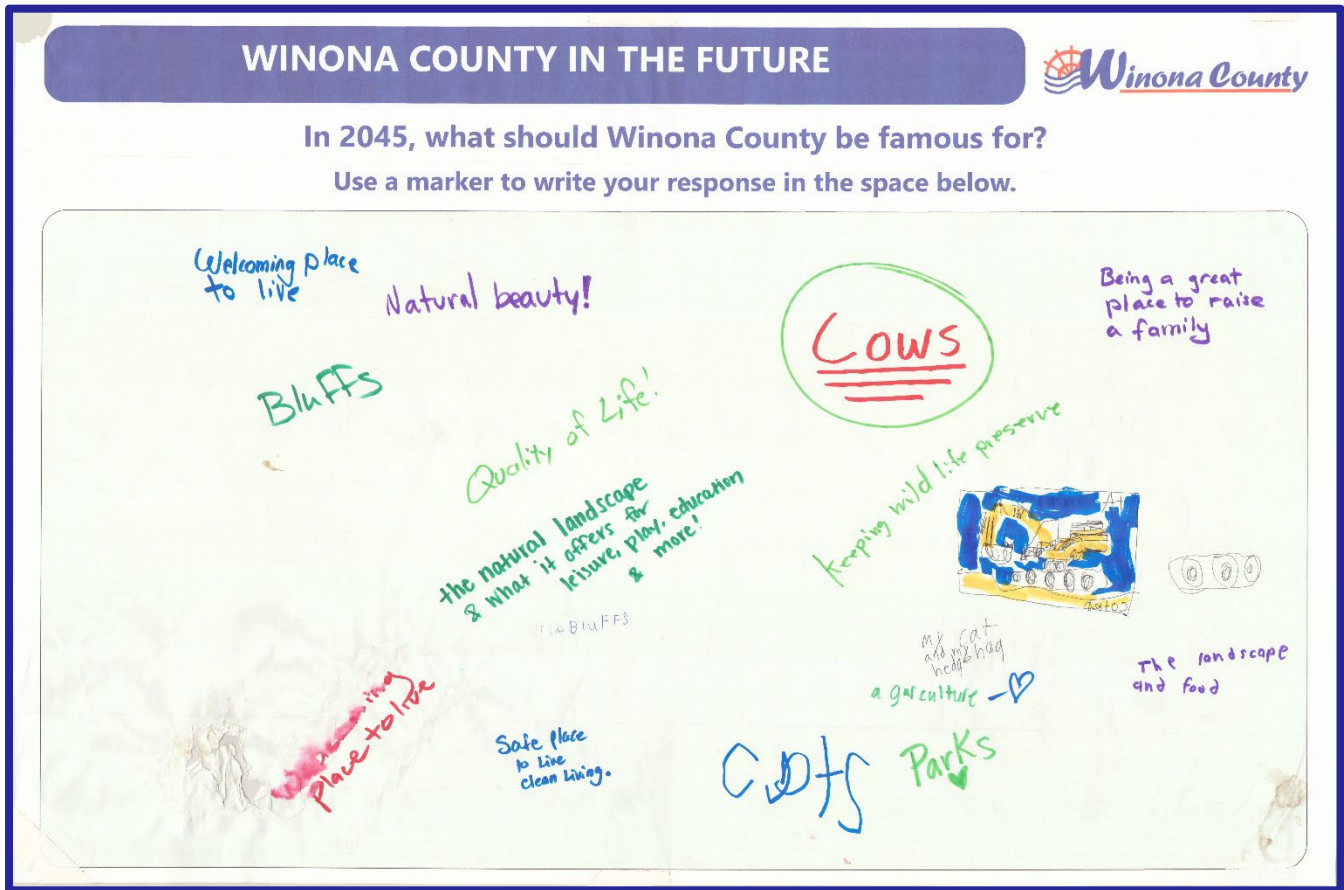 WINONA COUNTY IN THE FUTURE
Winona County
In 2045, what should Winona County be famous for?
Use a marker to write your response in the space below.
Welcoming place
to live
Natural beauty!
Cows
Being a great
place to raise
a family
Bluffs
Quality of Life!
keeping wild life preserve
the natural landscape
& what it offers for
leisure, play, education
& more!
BluFFs
my cat
and my
hedgehog
a gariculture
The landscape
and food
place to live
Safe place
to Live
clean Living.
Parks